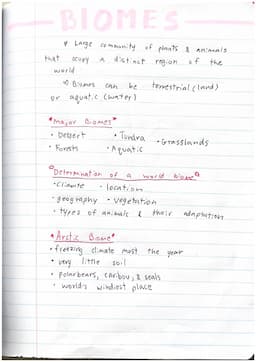 BIOMES
Large community of plants & animals
that occupy a distinct region of the
world
Biomes can be terrestrial (land)
or aquatic (water)
*Major Biomes*
• Desert • Tundra • Grasslands
• Forests • Aquatic
Determination of a world Biome
• Climate • location
• geography • vegetation
• types of animals & their adaptation
*Arctic Biome*
• freezing climate most the year
• very little soil
• polarbears, caribou, & seals
• world's windiest place